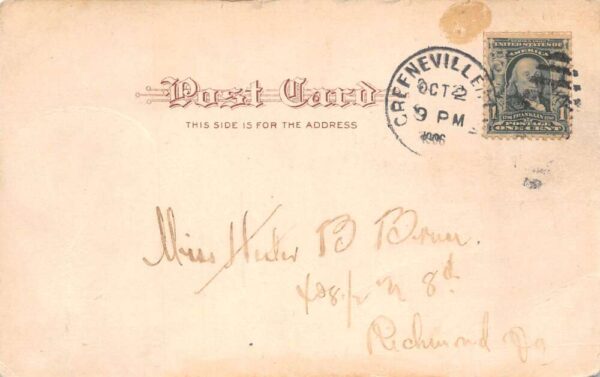 Post Card
THIS SIDE IS FOR THE ADDRESS
GREENEVILLE
OCT 2
9 PM
1906
UNITED STATES OF AMERICA
1
FRANKLIN
POSTAGE
ONE CENT
1
Miss B
408 1/2 N 8th
Richmond Va